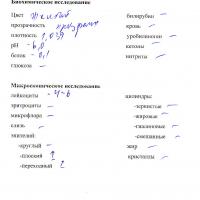 Биохимическое исследование
Цвет Желтый
прозрачность прозрачн
плотность 1,039
pH - 6,0
белок - 0,1
глюкоза –
билирубин –
кровь –
уробилиноген –
кетоны –
нитриты –
Микроскопическое исследование
лейкоциты - 4-6
эритроциты –
микрофлора –
слизь –
эпителий:
-круглый –
-плоский 1
-переходный 2
цилиндры:
-зернистые –
-жировые –
-гиалиновые –
-смешанные –
жир –
кристаллы –